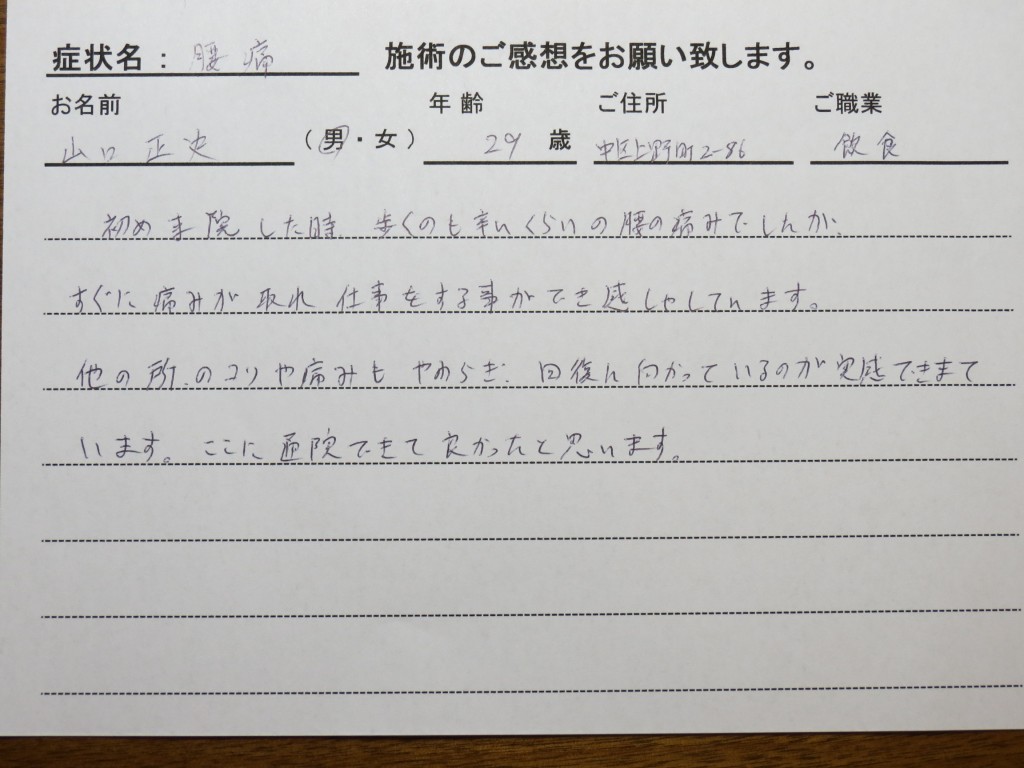 症状名：腰痛　施術のご感想をお願い致します。
お名前　年齢　ご住所　ご職業
山口正史（男・女）29歳　中区上野町2-86　飲食
初め来院した時、歩くのも辛いくらいの腰の痛みでしたが、
すぐに痛みが取れ仕事をする事ができ感しゃしています。
他の所のコリや痛みもやわらぎ、回復に向かっているのが実感できまて
います。ここに通院できて良かったと思います。